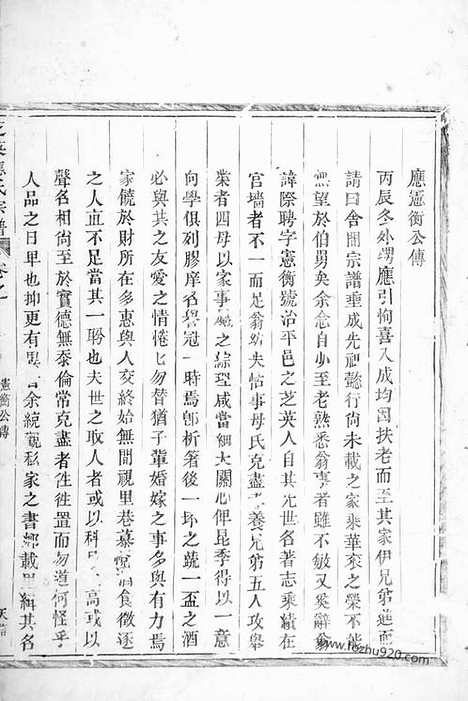 應憲衡公傳
丙辰冬外甥應引恂喜入成均因扶老而至其家伊兄弟進而
請曰舍間宗譜垂成先祖懿行尚未載之家乘華袞之榮不能
無望於伯舅矣余念自少至老熟悉翁事者雖不敏又奚辭翁
諱際聘字憲衡號治平邑之芝英人自其先世名著志乘績在
宮墻者不一而足翁幼失怙事母氏克盡孝養兄弟五人攻舉
業者四母以家事之綜理咸當細大關心俾昆季得以一意
向學俱列膠庠名譽冠一時焉卽析箸後一坏之蔬一盃之酒
必與共之友愛之情惓匕勿替猶子輩婚嫁之事多與有力焉
家饒於財所在多惠與人交終始無間視里巷徵逐
之人直不足當其一盼也夫世之取人者或以科高或以
聲名相尚至於實德無忝倫常克盡者徃徃置而勿道何怪乎
人品之日卑也抑更有余統觀私家之書都載輯其名
芝英應氏宗譜
卷之一
憲衡公傳
www.fozhu920.com